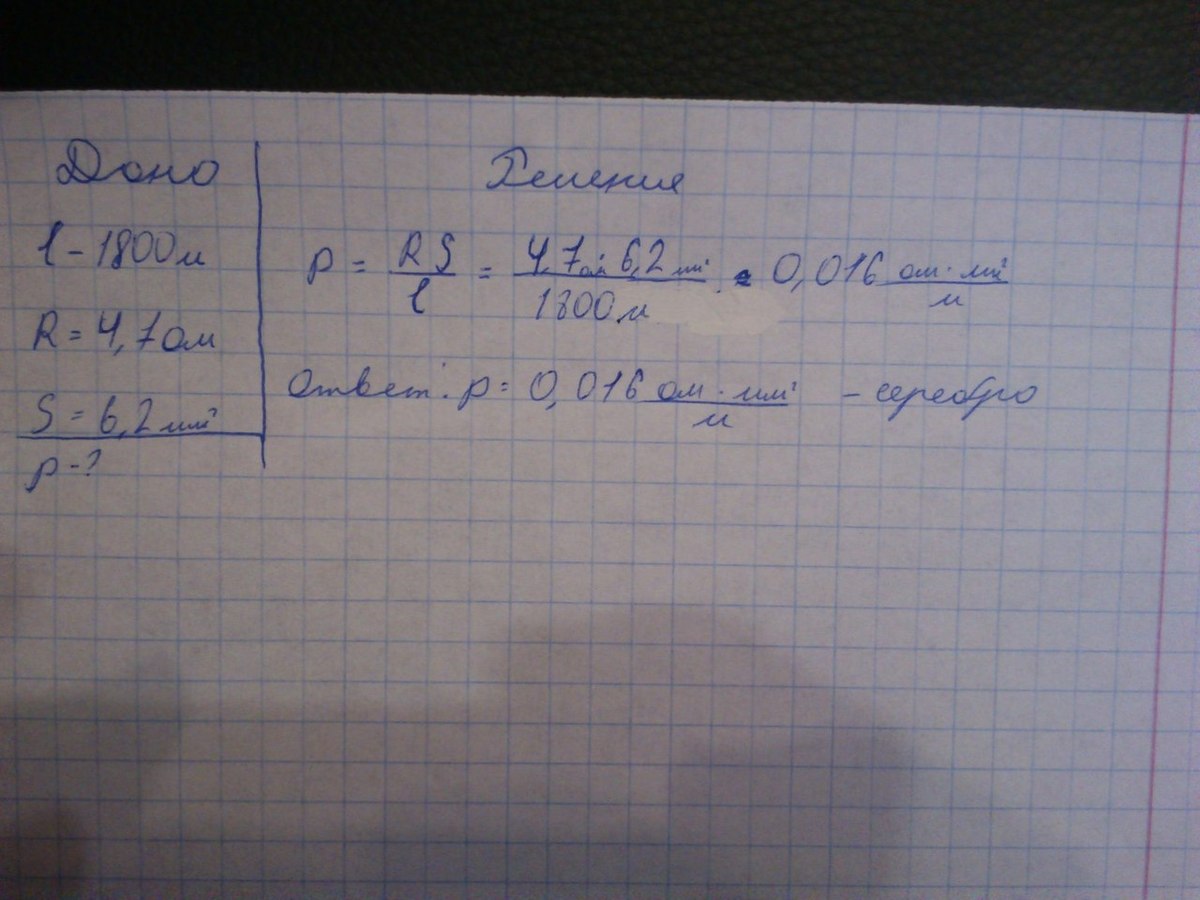 Дано
l - 1800 м
R = 4,7 ом
S = 6,2 мм²
p - ?
Решения
p = RS/l = 4,7 ом · 6,2 мм² / 1800 м = 0,016 ом · мм²/м
Ответ: p = 0,016 ом · мм²/м - серебро